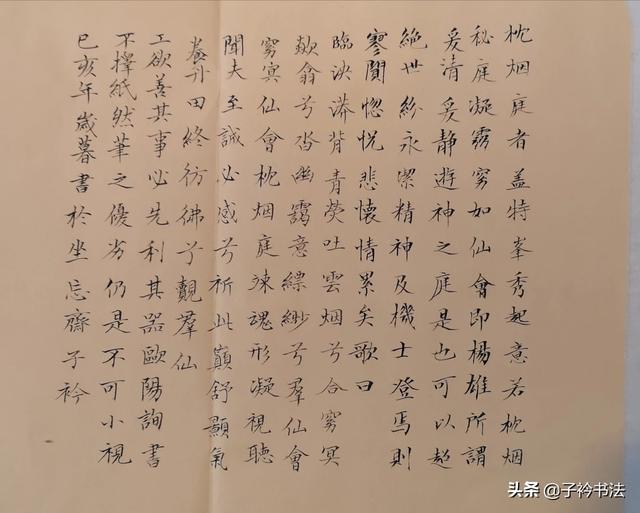 枕烟庭者盖特峯秀起意若枕烟
秘庭凝霧窅如仙會即楊雄所謂
爰清爰静遊神之庭是也可以超
絶世紛永潔精神及機士登焉則
寥闃惚怳悲懷情累矣歌曰
臨泱漭背青熒吐雲烟兮合窅冥
欻翕兮沓幽靄意縹緲兮羣仙會
窅冥仙會枕烟庭竦魂形凝視聽
聞夫至誠必感兮祈此巔舒顥氣
養丹田終彷彿兮覿羣仙
工欲善其事必先利其器歐陽詢書
不擇紙然筆之優劣仍是不可小視
己亥年歲暮書於坐忘齋子衿
头条@子衿书法